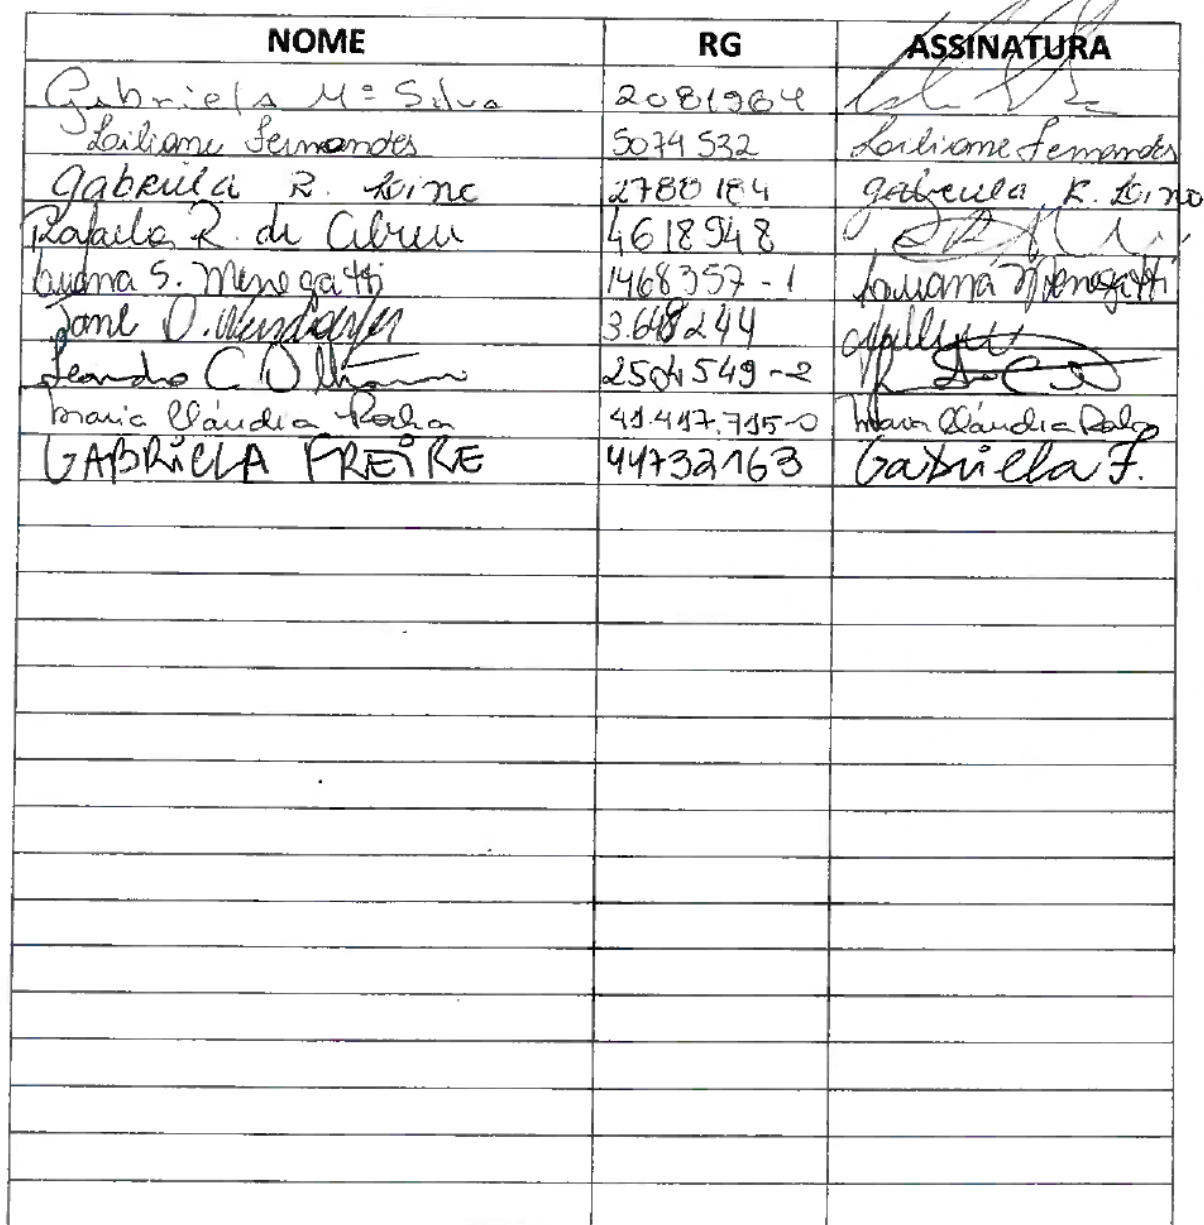 NOME RG ASSINATURA
Gabriela Mª Silva 2081964
Liliane Fernandes 5074532 Liliane Fernandes
Gabriela R. Lino 2780184 Gabriela R. Lino
Rafaela R. de Abreu 4618948
Luana S. Menegatti 1468357-1 Luana Menegatti
Jane O. 3.648244
Leandro C. 2504549-2
Maria Cláudia Rocha 41.417.715-0 Maria Cláudia Rocha
GABRIELLA FREIRE 44732163 Gabriella F.